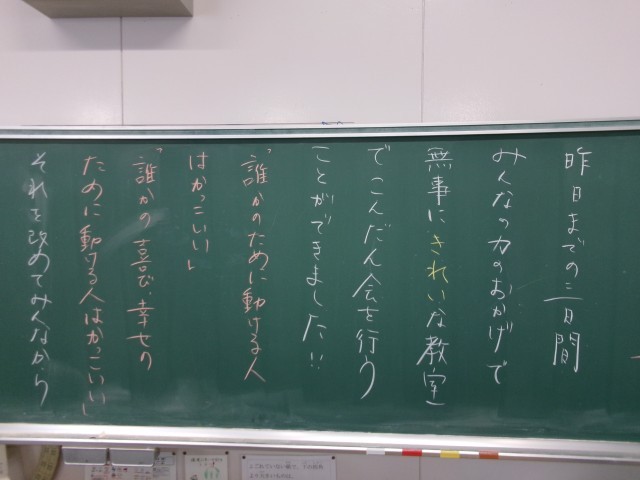 昨日までの二日間
みんなの力のおかげで
無事にきれいな教室
でこんだん会を行う
ことができました!!
「誰かのために動ける人
はかっこいい」
「誰かの喜び・幸せの
ために動ける人はかっこいい」
それを改めてみんなから